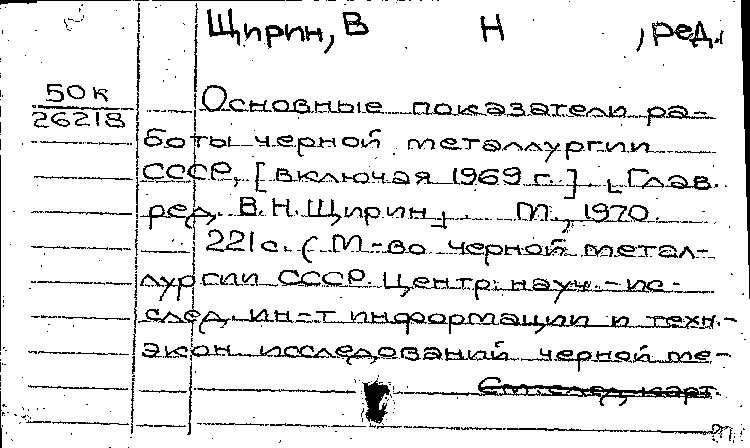 Щирин, В Н , ред.
50к
26218
Основные показатели ра-
боты черной металлургии
СССР, [включая 1969 г.]. [Глав.
ред. В.Н. Щирин]. М., 1970.
221 с. (М-во черной метал-
лургии СССР. Центр. науч.-ис-
след. ин-т информации и техн.-
экон. исследований черной ме-
См. след. карт.